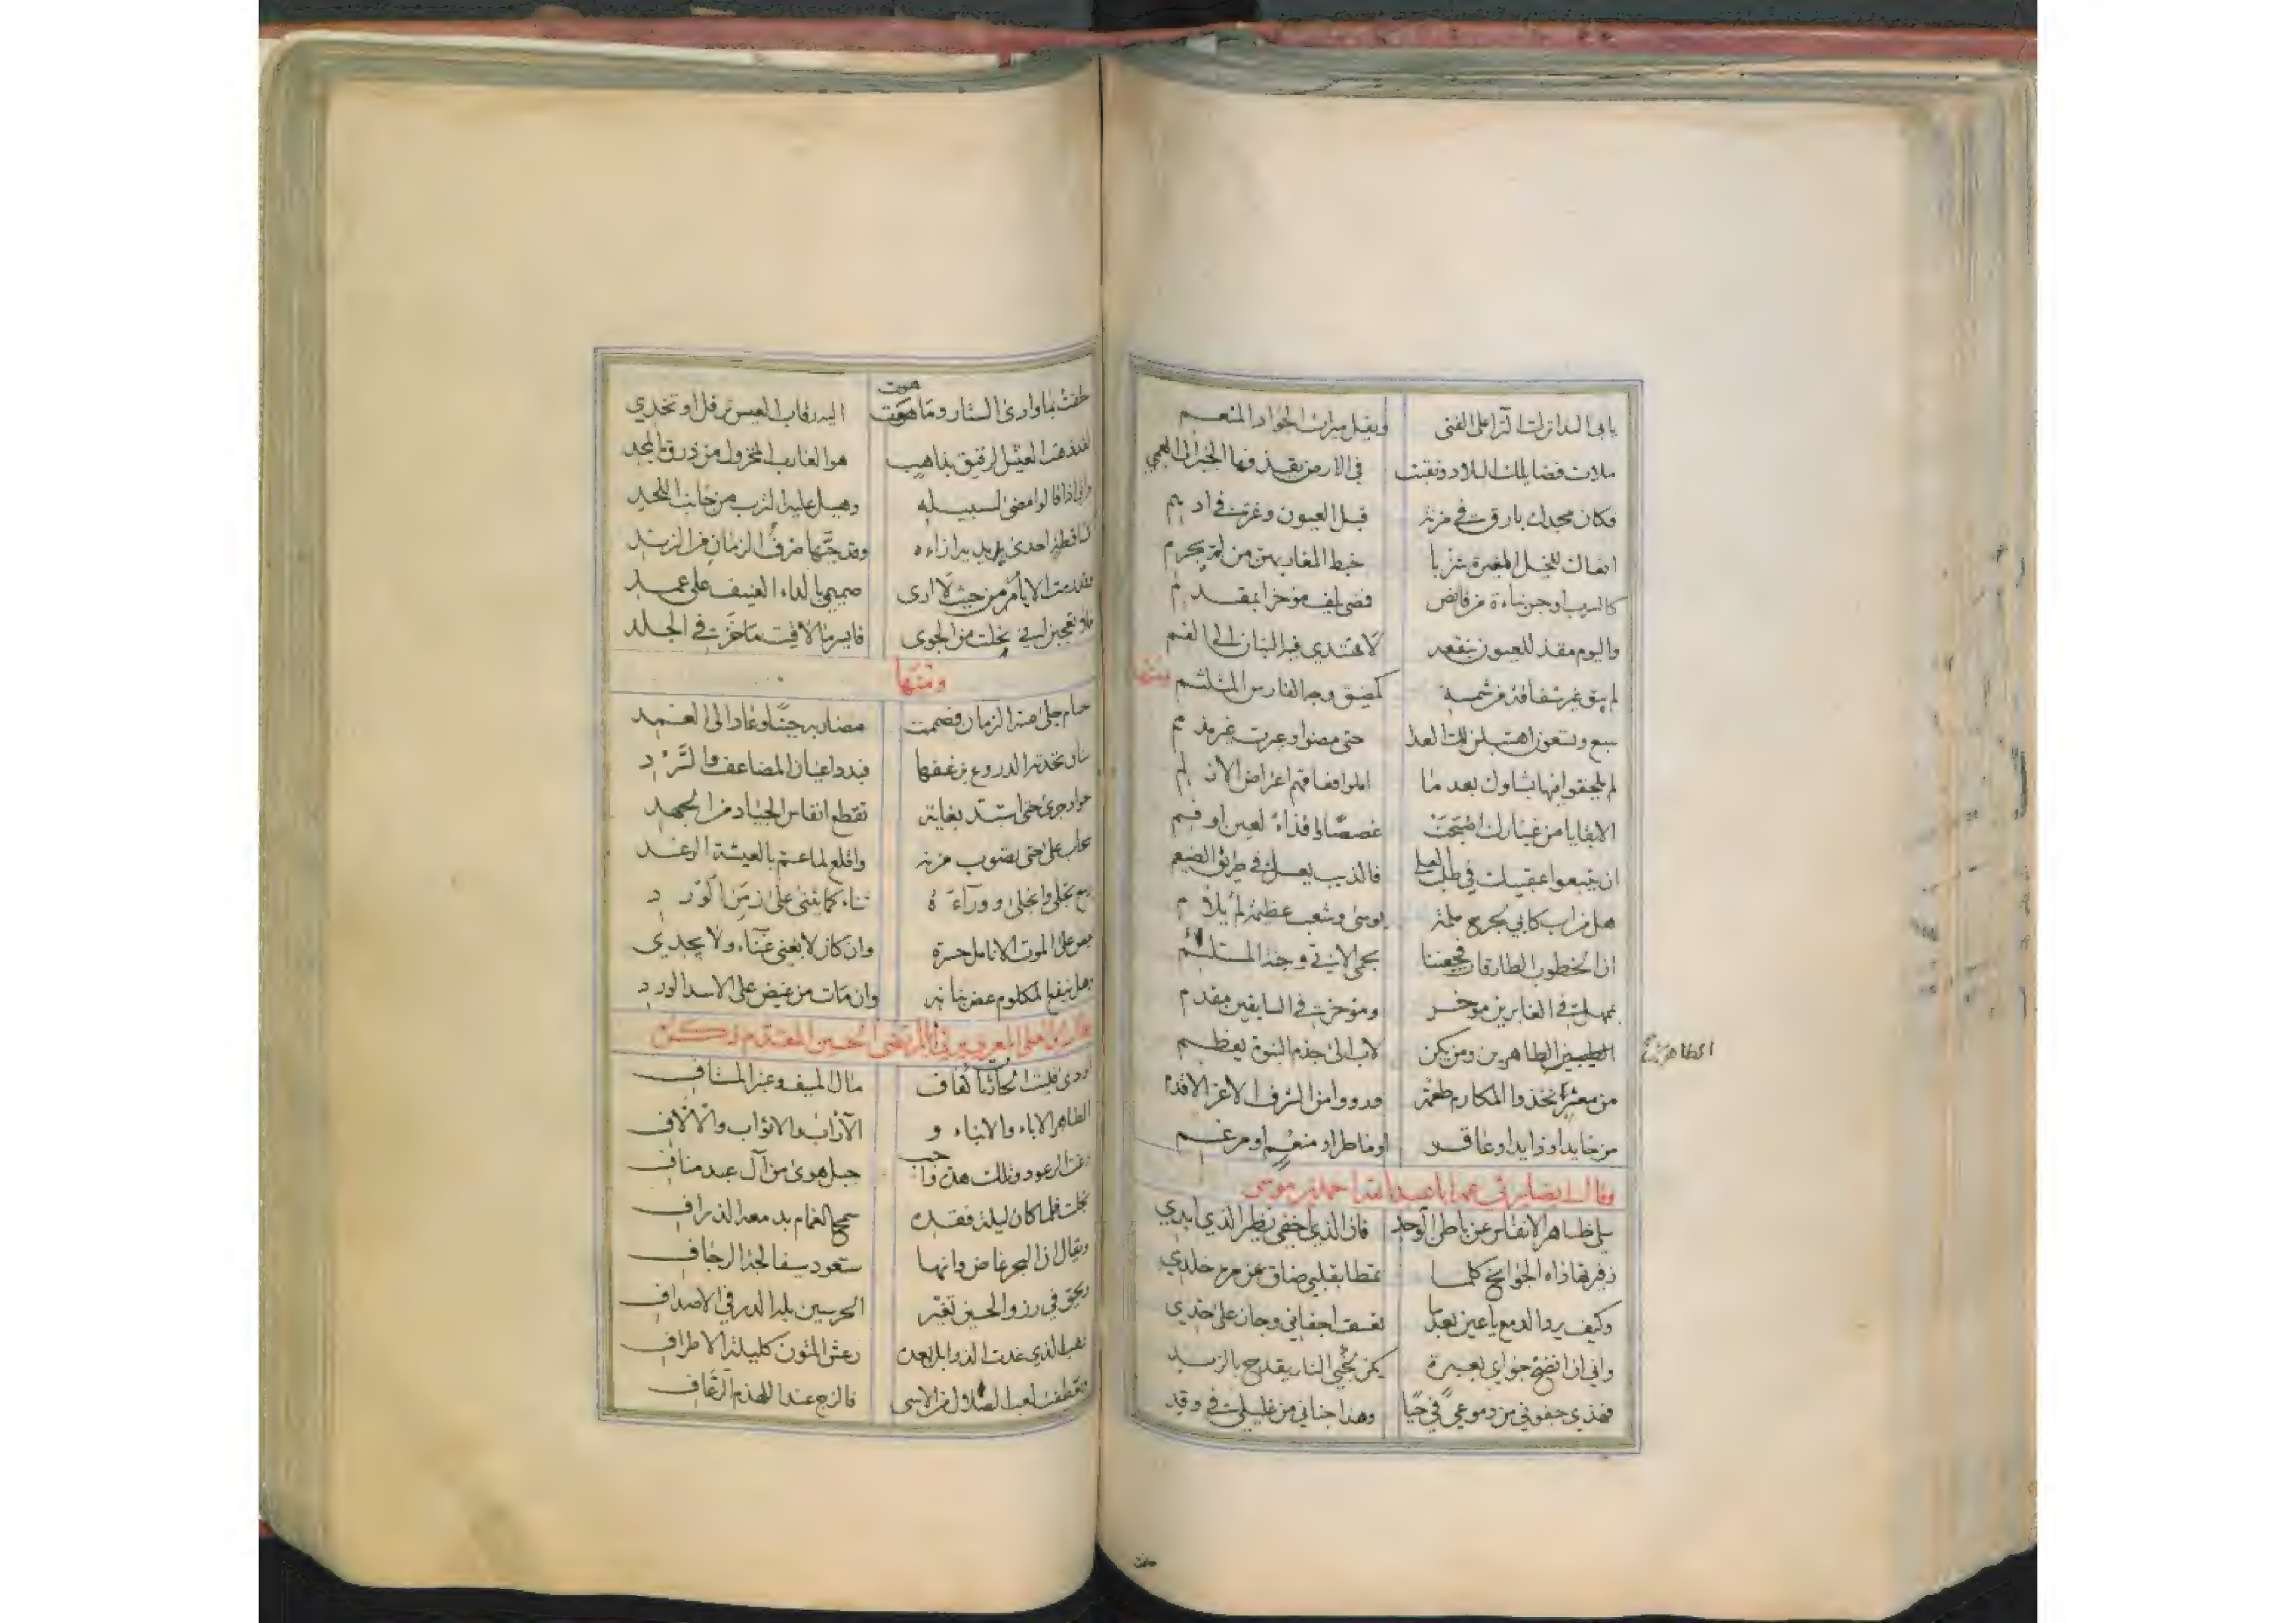 يابى الندا تراث آثرا على الغنى ويقل ميراث الجواد المنعم
ملات فضايلك البلاد ونقبت في الارض يقذفها الخبير الى العمي
فكان مجدك بارق في مزنة قبل العيون وغرة في اديم
انعاك للخيل المغيرة شزبا خبط المغار بهن من لم يجرم
كالسرب اوجس نباءة من قانص فمضى يلف مؤخرا بمقدم
واليوم مقذ للعيون بنقعه لا يهتدي فيه البنان الى الفم
لم يبق غير شفافة من شمسه كمضيق وجه الفارس المتلثم
ومنها
سبع وتسعون اهتبلن لك العدا حتى مضوا وعبرت غير مذمم
لم يلحقوا فيها بشاوك بعد ما املوا فعاقهم اعتراض الازلم
الا بقايا من غبارك اصبحت غصصا واقذاء لعين او فم
ان يتبعوا عقبيك في طلب العلى فالذيب يعسل في طريق الضيغم
هل من اب كابي لجرح ملمة يوسى وشعب عظيمة لم يلام
ان الخطوب الطارقات فجعننا بحمى الابي وجنة المستلئم
بممهل في الغابرين مؤخر ومؤخر في السابقين مقدم
الطيبين الطاهرين ومن يكن لاب الى جذم النبوة يعظم
الطاهرين
من معشر اتخذوا المكارم طعمة ورووا من الشرف الاعز الاقدم
من خايد او زايد او عاقر او ماطر او منعم او مرغم
وقال ايضا يرثي عمه ابا عبد الله احمد بن موسى
سلي ظاهر الانفاس عن باطن الوجد فان الذي اخفي نظير الذي ابدي
زفير تهاداه الجوانح كلما تمطى بقلبي ضاق عن مره جلدي
وكيف يرد الدمع يا عين بعد ما تعسف اجفاني وجار على خدي
واني ان انضح جواي بعبرة يكن كخبي النار يقدح بالزند
فهذي جفوني من دموعي في حيا وهذا جناني من غليلي في وقد
حلفت بما وارى الستار وما هوت اليه رقاب العيس ترقل او تخدي
لقد ذهب العيش الرقيق بذاهب هو الغارب المجزول من ذروة المجد
واني اذا قالوا مضى لسبيله وهيل عليه الترب من جانب اللحد
كساقطة احدى يديه ازاءه وقد جبها صرف الزمان من الزند
وقد رمت الايام من حيث لا ارى صميمي بالداء العنيف على عمد
فلا تعجبا اني نحلت من الجوى فايسر ما لاقيت ما حز في الجلد
ومنها
حسام جلى عنه الزمان فصممت مضاربه حينا وعاد الى الغمد
سنان تحدته الدروع بزغفها فبدد اعيان المضاعف والسرد
جواد جرى حتى استبد بغاية تقطع انفاس الجياد من الجهد
سحاب على حتى تصوب مزنه واقلع لما عم بالعيشة الرغد
ربيع تجلى وانجلى ووراءه ثناء كما يثنى على زمن الورد
نعض على الموت الانامل حسرة وان كان لا يغني عناء ولا يجدي
وهل ينفع المكلوم عض بنانه وان مات من غيض على الاسد الورد
اودى فليت الحادثات كفاف مال المسيف وعنبر المستاف
الطاهر الاباء والابناء و الآراب والاثواب والآلاف
رغت الرعود وتلك هدة واجب جبل هوى من آل عبد مناف
بخلت فلما كان ليلة فقده سمح الغمام بدمعه الذراف
ويقال ان البحر غاض وانها ستعود سيفا لجة الرجاف
ويحق في رزو الحسين تغير الحرسين بله الدر في الاصداف
ذهب الذي غدت الذوابل بعده رعش المتون كليلة الاطراف
وتعطفت لعب الصلال من الاسى فالزج عند اللهذم الرعاف